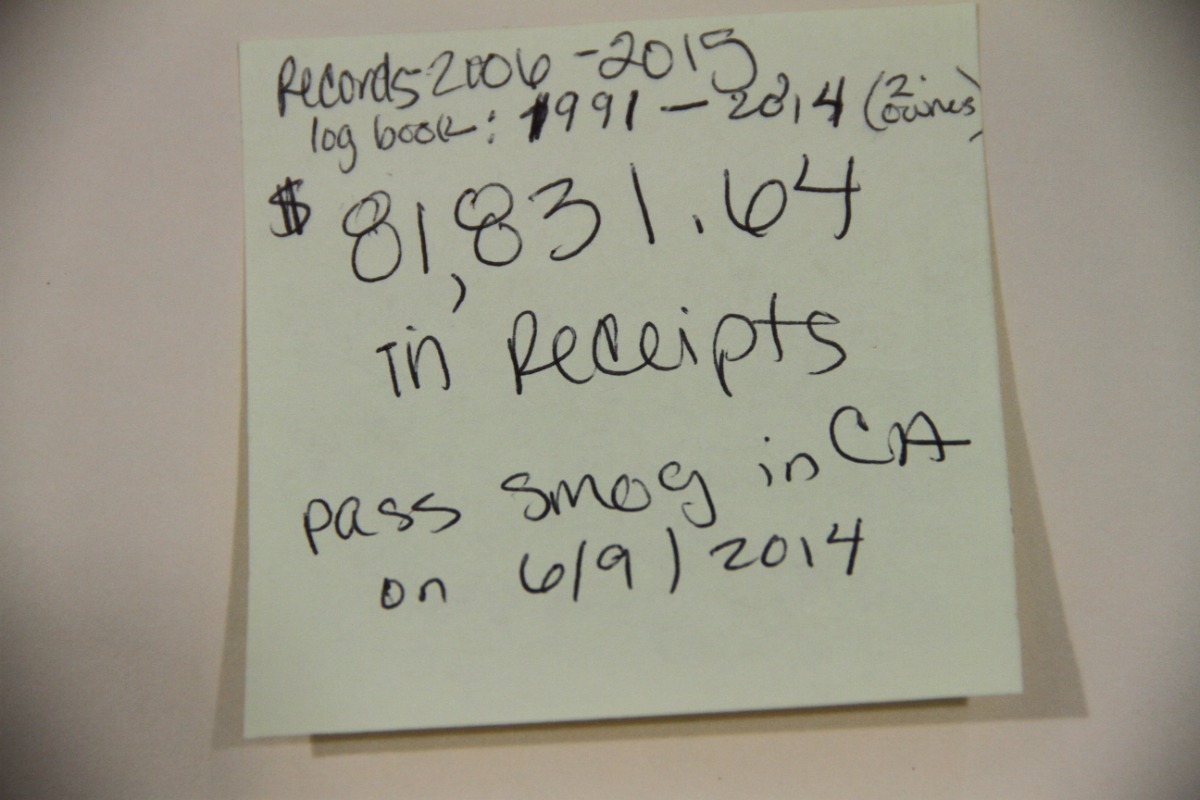 Records 2006 - 2015
log book: 1991 - 2014 (2 owners)
$81,831.64
in Receipts
pass smog in CA
on 6/9/2014